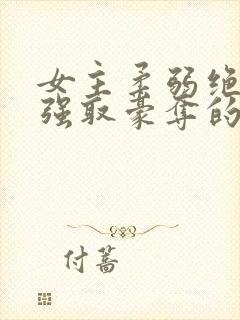 女主柔弱绝
强取豪夺的
付蔷